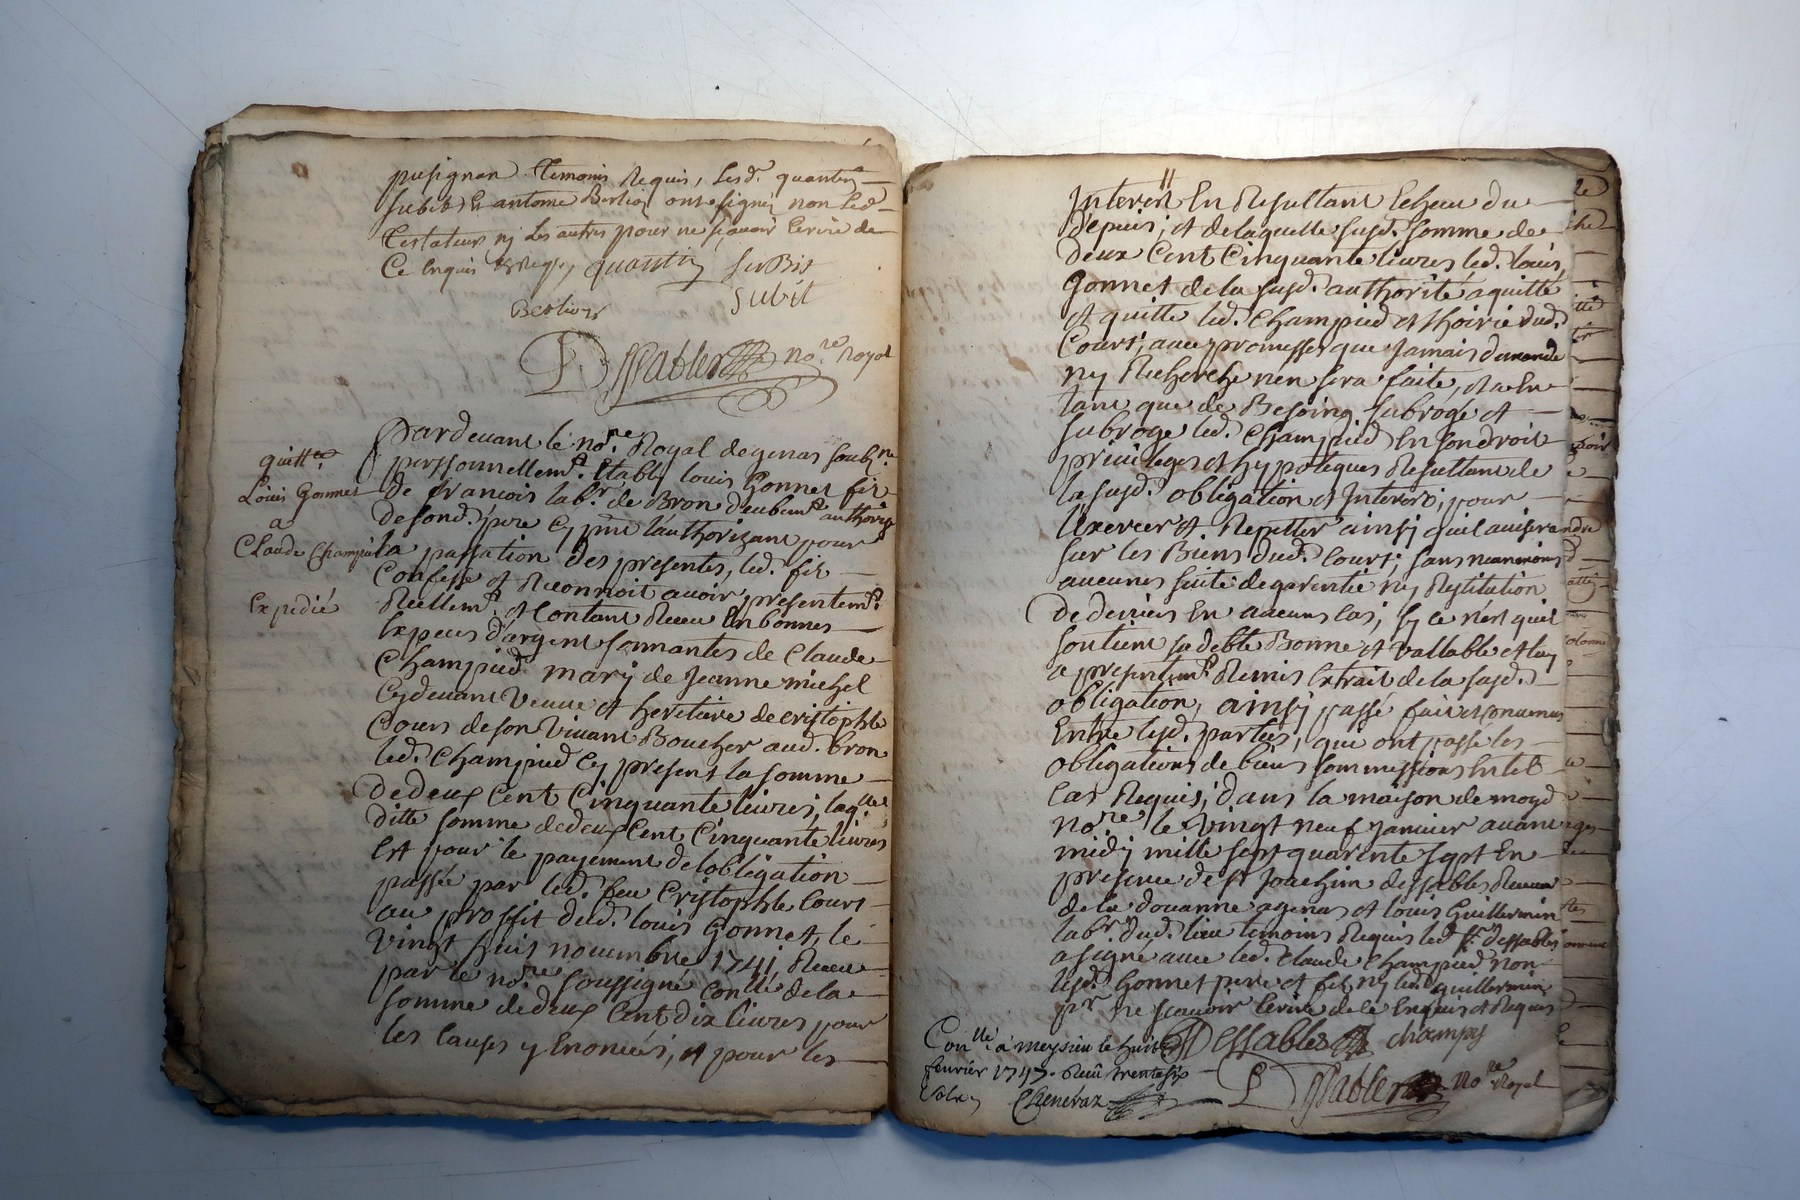 pusignan temoins Requis, Lesd. quantin
Subit et antoine Berlioz ont signés non Led.
Testateur ny Les autres pour ne sçavoir Ecrire de
Ce Enquis quantin SuBit
Subit
Berlioz
Dessables no.re Royal
quitt.ce
Louis Gonnet
a
Claude Champied
Expedié
Pardevant le no.re Royal de genas soub.né
personnellem.t Etably louis Gonnet fils
de francois lab.r de Bron deubem.t authorisé
desond. pere Cy p.nt lauthorizant pour
la passation des presentes, led. fils
Confesse et Reconnoit avoir presentem.t
Reellem.t et Contant Receu En bonnes
Especes d'argent sonnantes de Claude
Champied mary de Jeanne michel
Cydevant Veuve et heretiere de cristophle
Court de son Vivant Boucher aud. bron
led. Champied Cy present la somme
De deux Cent Cinquante livres, laq.lle
ditte somme de deux Cent Cinquante livres
Est pour le payement de lobligation
passée par led. feu Cristophle Court
au proffit dud. louis Gonnet, le
Vingt huit novembre 1741, Receu
par le no.re soussigné Con.llé de la
somme de deux Cent dix livres pour
les Causes y Enoncées, et pour les
Interest En Resultant Echeu du
depuis, et de laquelle susd. somme de
deux Cent Cinquante livres led. louis
Gonnet de la susd. authorité a quitté
et quitte led. Champied et hoirie dud.
Court, avec promesse que Jamais demande
ny Recherche nen sera faite, et a En
tant que de Besoing subrogé et
subroge led. Champied En son droit
privileges et hypoteques Resultant de
la susd. obligation et Interest, pour
Exercer et Repetter ainsy quil avisera
sur les Biens dud. Court, sans neanmoins
aucunes suitte de garentie ny Restitution
De deniers En aucuns cas, sy ce n'est quil
soutient sa debte Bonne et Vallable et luy
a presentem.t Remis Extrait de la susd.
obligation, ainsy passé fait et Convenus
Entre lesd. parties, qui ont passé les
obligations de biens sommissions En tel
Cas Requis, dans la maison de moyd.
no.re le Vingt neuf Janvier avant
midy mille sept quarente sept En
presence de s.r Joachim dessables Receveur
de la douanne a genas et louis Guillermin
lab.r dud. lieu temoins Requis led. s.r dessables
a signé avec led. Claude Champied non
lesd. Gonnet pere et fils ny led. guillermin
p.r ne scavoir Ecrire de ce Enquis et Requis
Dessables champy
Con.llé a meysieu le huit
fevrier 1747. Reçû trente six
sols Chenevaz
Dessables No.re Royal